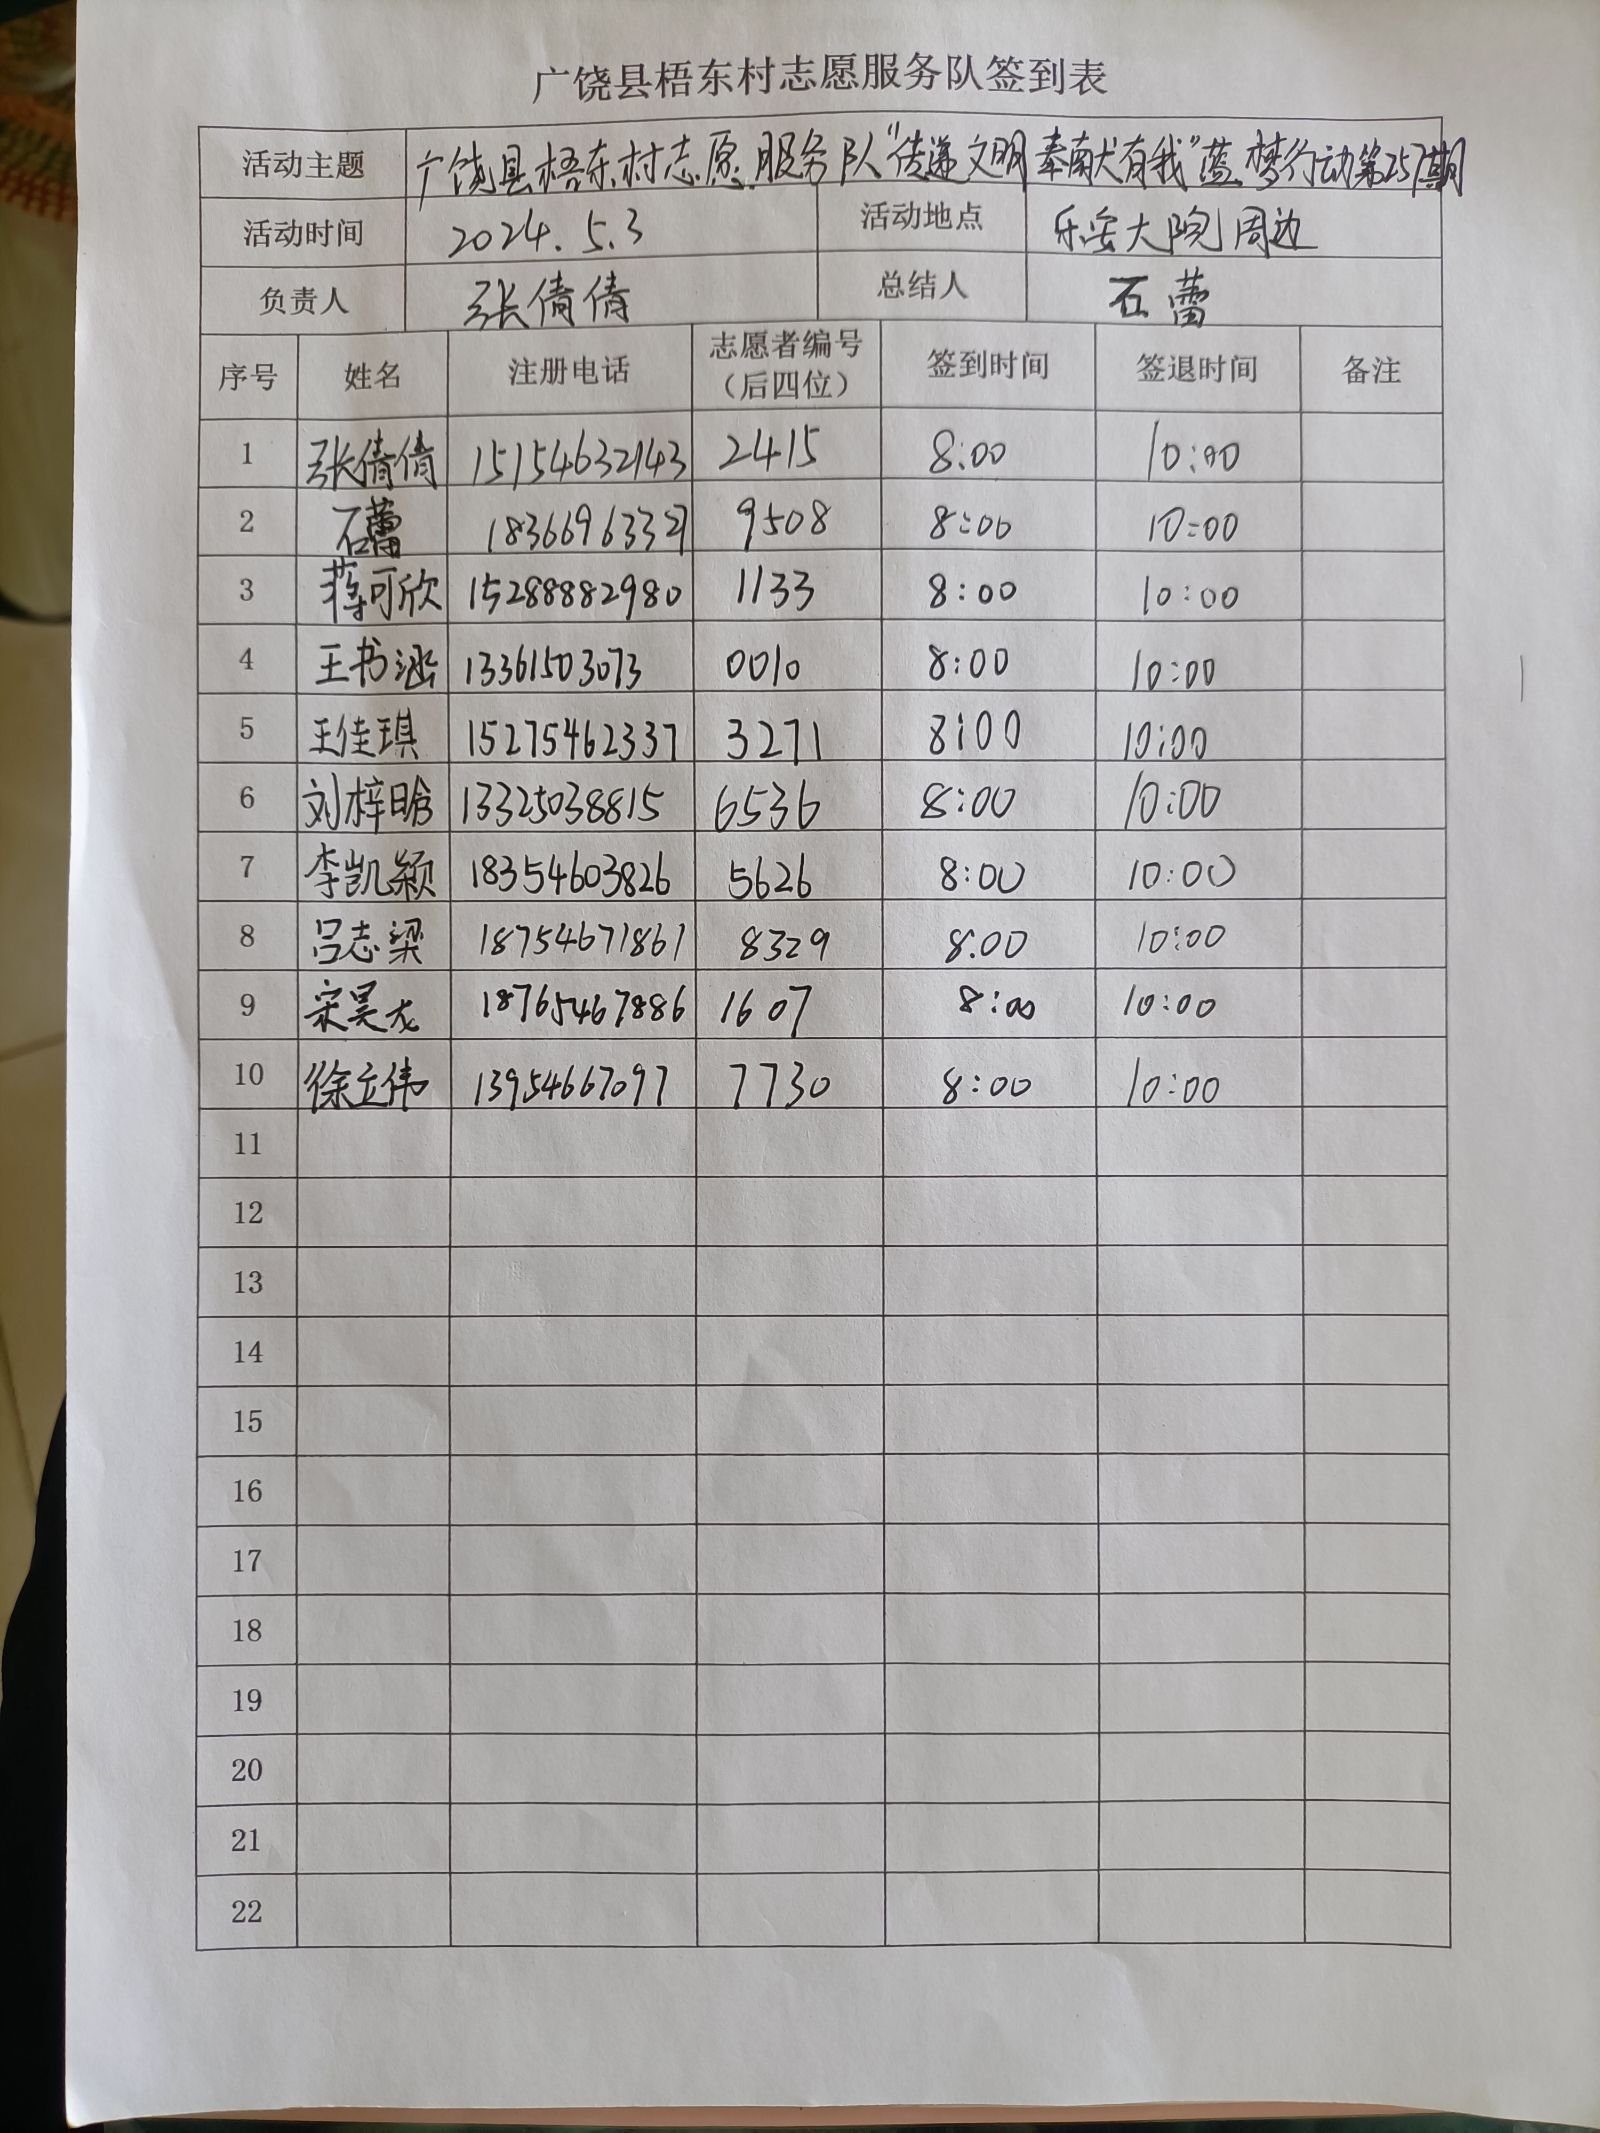 广饶县梧东村志愿服务队签到表
活动主题 广饶县梧东村志愿服务队“传递文明 奉献有我”蓝梦行动第257期
活动时间 2024.5.3 活动地点 乐安大院周边
负责人 张倩倩 总结人 石蕾
序号 姓名 注册电话 志愿者编号（后四位） 签到时间 签退时间 备注
1 张倩倩 15154632143 2415 8:00 10:00
2 石蕾 9508 8:00 10:00
3 蒋可欣 15288882980 1133 8:00 10:00
4 王书涵 13361503073 0010 8:00 10:00
5 王佳琪 15275462337 3271 8:00 10:00
6 刘梓晗 13325038815 6536 8:00 10:00
7 李凯颖 18354603826 5626 8:00 10:00
8 吕志梁 18754671861 8329 8.00 10:00
9 宋昊龙 18765467886 1607 8:00 10:00
10 徐立伟 13954667097 7730 8:00 10:00
11
12
13
14
15
16
17
18
19
20
21
22